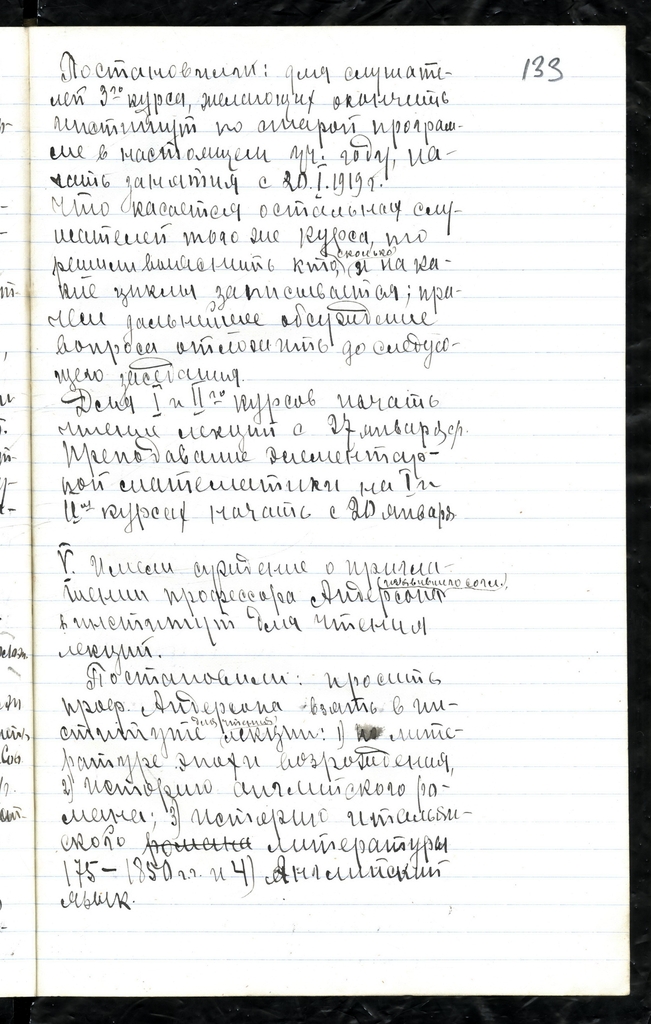 133
Постановили: для слушате-
лей 3го курса, желающих окончить
институт по старой програм-
ме в настоящем уч. году, на-
чать занятия с 20.I.1919 г.
Что касается остальных слу-
шателей того же курса, то
решили выяснить кто, сколько и на ка-
кие циклы записывается; при-
чем дальнейшее обсуждение
вопроса отложить до следую-
щего заседания.
Для I и IIго курсов начать
чтение лекций с 27 января ср.
Преподавание элементар-
ной математики на I и
IIом курсах начать с 20 января
V. Имели суждение о пригла-
шении профессора Андерсона (изъявившего согл.)
в институт для чтения
лекций.
Постановили: просить
проф. Андерсона взять в ин-
ституте для чтения лекции: 1) по лите-
ратуре эпохи возрождения,
2) историю английского ро-
мана; 3) историю итальян-
ского романа литературы
175–1850 г.г. и 4) Английский
язык.